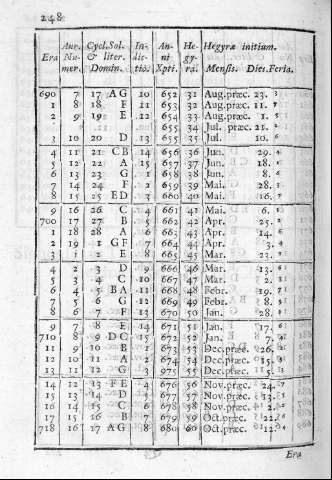 248
Era Aur. Nu- mer. Cycl. Sol. & liter. Domin. In- di- ctio. An- ni Xpti. He- gy- ræ. Hegyræ initium. Mensis. Dies. Feria.
690 7 17 AG 10 652 31 Aug.præc. 23.
1 8 18 F 11 653 32 Aug.præc. 11.
2 9 19 E 12 654 33 Aug.præc. 1.
655 34 Jul. præc. 21.
3 10 20 D 13 655 35 Jul. 10.
4 11 21 CB 14 656 36 Jun. 29.
5 12 22 A 15 657 37 Jun. 18.
6 13 23 G 1 658 38 Jun. 8.
7 14 24 F 2 659 39 Mai. 28.
8 15 25 ED 3 660 40 Mai. 16.
9 16 26 C 4 661 41 Mai. 6.
700 17 27 B 5 662 42 Apr. 25.
1 18 28 A 6 663 43 Apr. 14.
2 19 1 GF 7 664 44 Apr. 3.
3 1 2 E 8 665 45 Mar. 23.
4 2 3 D 9 666 46 Mar. 13.
5 3 4 C 10 667 47 Mar. 2.
6 4 5 BA 11 668 48 Febr. 19.
7 5 6 G 12 669 49 Febr. 8.
8 6 7 F 13 670 50 Jan. 28.
9 7 8 E 14 671 51 Jan. 17.
710 8 9 DC 15 672 52 Jan. 7.
11 9 10 B 1 673 53 Dec.præc. 26.
12 10 11 A 2 674 54 Dec.præc. 15.
13 11 12 G 3 975 55 Dec.præc. 5.
14 12 13 FE 4 676 56 Nov.præc. 24.
15 13 14 D 5 677 57 Nov.præc. 13.
16 14 15 C 6 678 58 Nov.præc. 2.
17 15 16 B 7 679 59 Oct.præc. 22.
718 16 17 AG 8 680 60 Oct.præc. 12.
Era